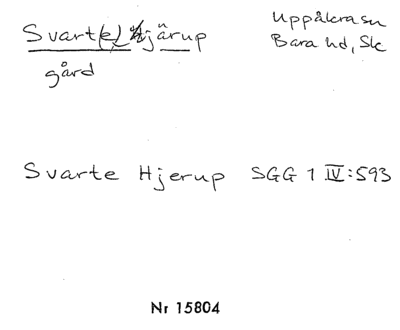 Svart(e) Hjärup
gård
Uppåkra sn
Bara hd, Sk
Svarte Hjerup SGG 1 IV:593
Nr 15804